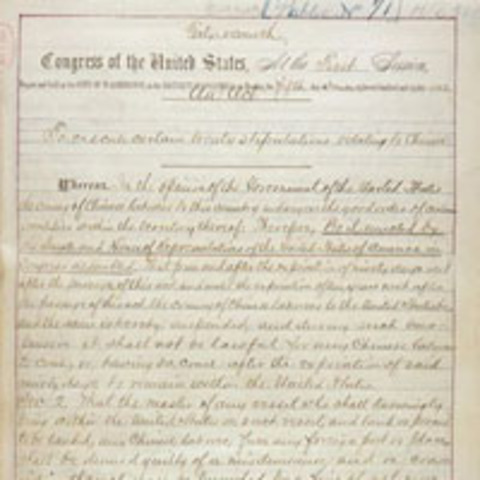 (Public No 71)
Forty-seventh
Congress of the United States, At the First Session,
An Act
To execute certain treaty stipulations relating to Chinese
Whereas, In the opinion of the Government of the United States
the coming of Chinese laborers to this country endangers the good order of certain
localities within the territory thereof: Therefore, Be it enacted by
the Senate and House of Representatives of the United States of America in
Congress assembled, That from and after the expiration of ninety days next
after the passage of this act, and until the expiration of ten years next after
the passage of this act, the coming of Chinese laborers to the United States be,
and the same is hereby, suspended; and during such sus-
pension it shall not be lawful for any Chinese laborer
to come, or, having so come after the expiration of said
ninety days, to remain within the United States.
Sec. 2. That the master of any vessel who shall knowingly
bring within the United States on such vessel, and land or permit
to be landed, any Chinese laborer, from any foreign port or place,
shall be deemed guilty of a misdemeanor, and on con-